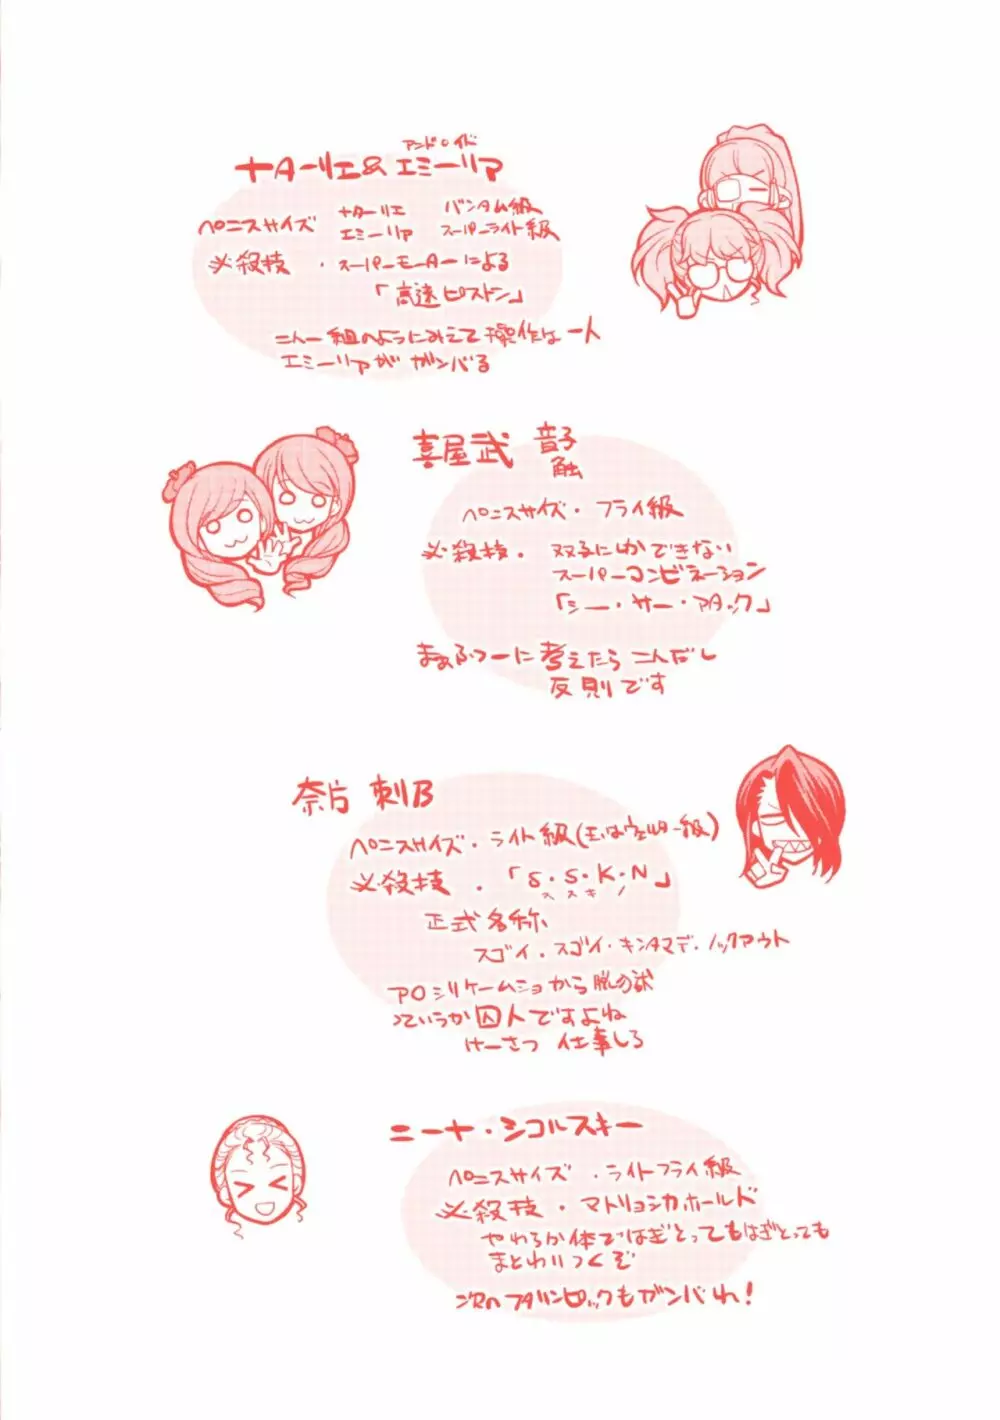 アンドロイド
ナターリエ&エミーリア
ペニスサイズ ナターリエ バンタム級
エミーリア スーパーライト級
必殺技・スーパーモーターによる
「高速ピストン」
二人一組のようにみえて操作は一人
エミーリアがガンバる
喜屋武 音子
触
ペニスサイズ・フライ級
必殺技・双子にしかできない
スーパーコンビネーション
「シー・サー・アタック」
まぁふつーに考えたら二人だし
反則です
奈片 刺B
ペニスサイズ・ライト級(玉はウェルター級)
必殺技・「S・S・K・N」
ススキノ
正式名称
スゴイ・スゴイ・キンタマデ・ノックアウト
から脱獄
っていうか囚人ですよね
けーさつ 仕事しろ
ニーナ・シコルスキー
ペニスサイズ・ライトフライ級
必殺技・マトリョシカホールド
やわらか体ではぎとってもはぎとっても
まとわりつくぞ
次のフタリンピックもガンバれ!